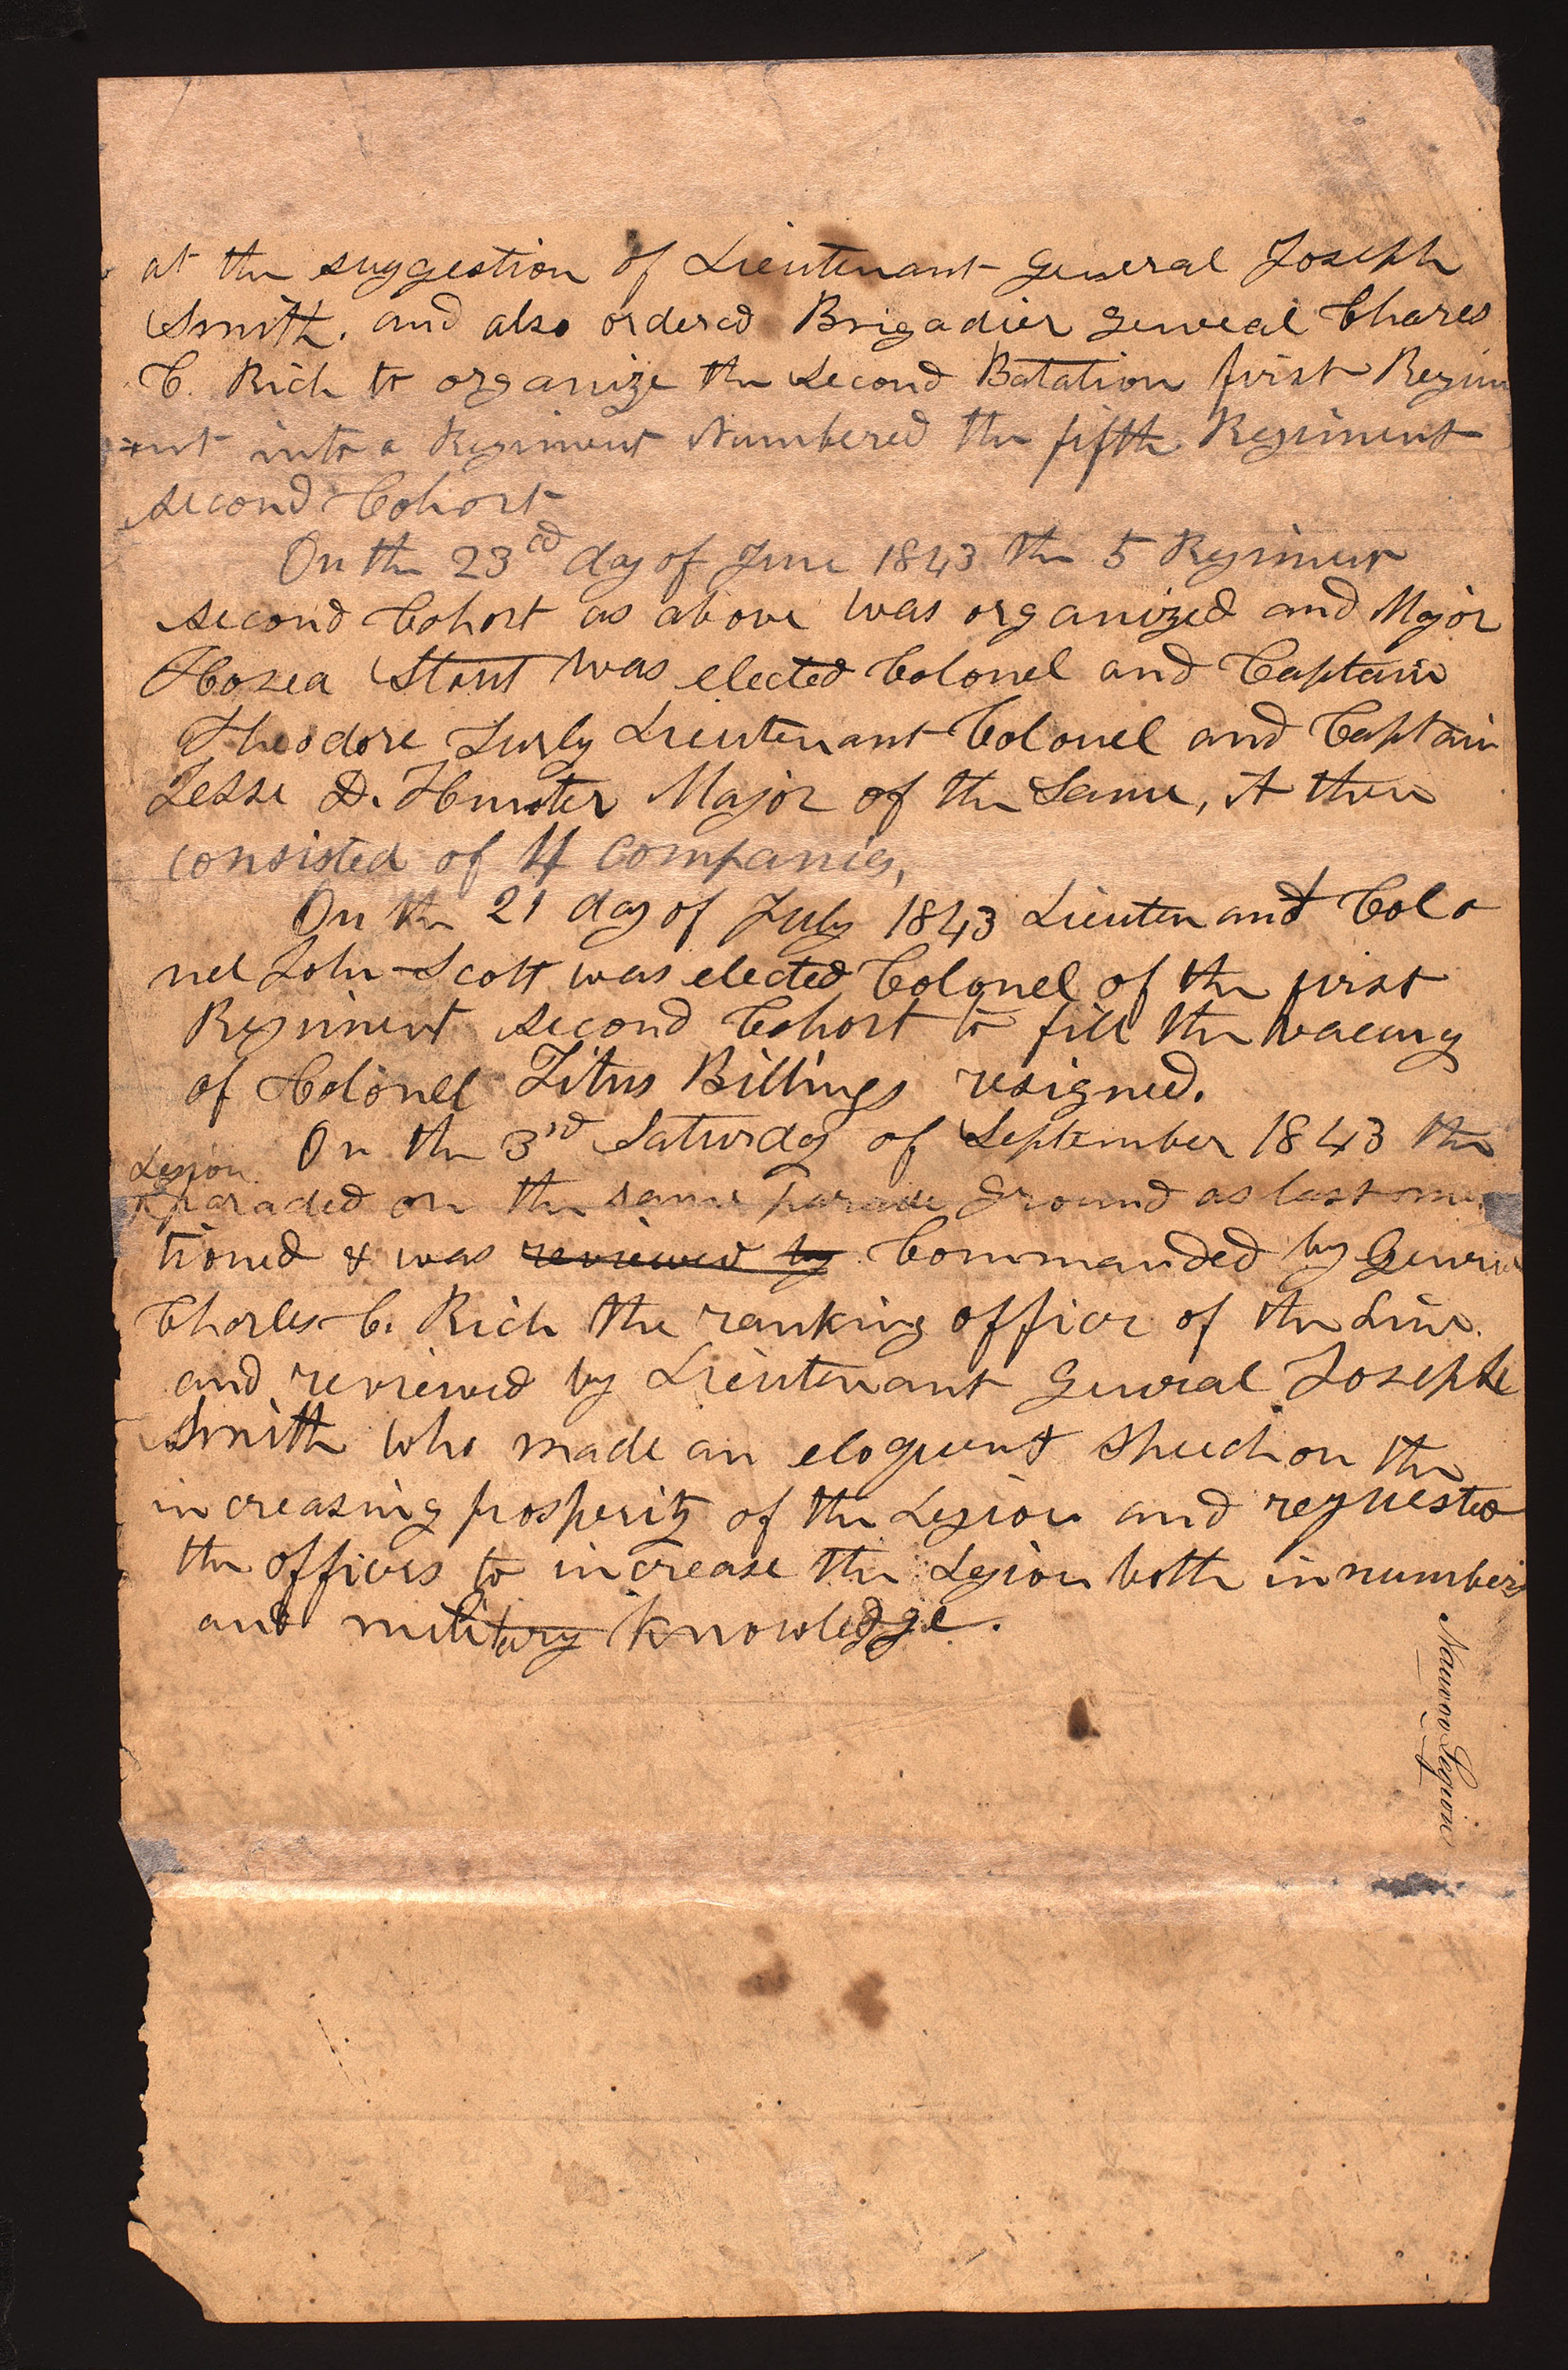 at the suggestion of Lieutenant General Joseph
Smith. and also ordered Brigadier General Chares
C. Rich to organize the second Batation first Regim
=ent into a Regiment Numbered the fifth Regiment
second Cohort
On the 23rd day of June 1843 the 5 Regiment
second Cohort as above was organized and Major
Hosea Stout was elected Colonel and Captain
Theodore Turly Lieutenant Colonel and Captain
Jesse D. Hunter Major of the Same, it then
consisted of 4 Companies,
On the 21 day of July 1843 Lieutenant Colo
nel John Scott was elected Colonel of the first
Regiment second Cohort to fill the vacancy
of Colonel Titus Billings resigned.
On the 3rd Saturday of September 1843 the
Legion
paraded on the same parade ground as last men
tioned & was reviewed by Commanded by General
Charles C. Rich the ranking officer of the Line.
and reviewed by Lieutenant General Joseph
Smith who made an eloquent speech on the
increasing prosperity of the Legion and requested
the officers to increase the Legion both in numbers
and military knowledge.
Nauvoo Legion